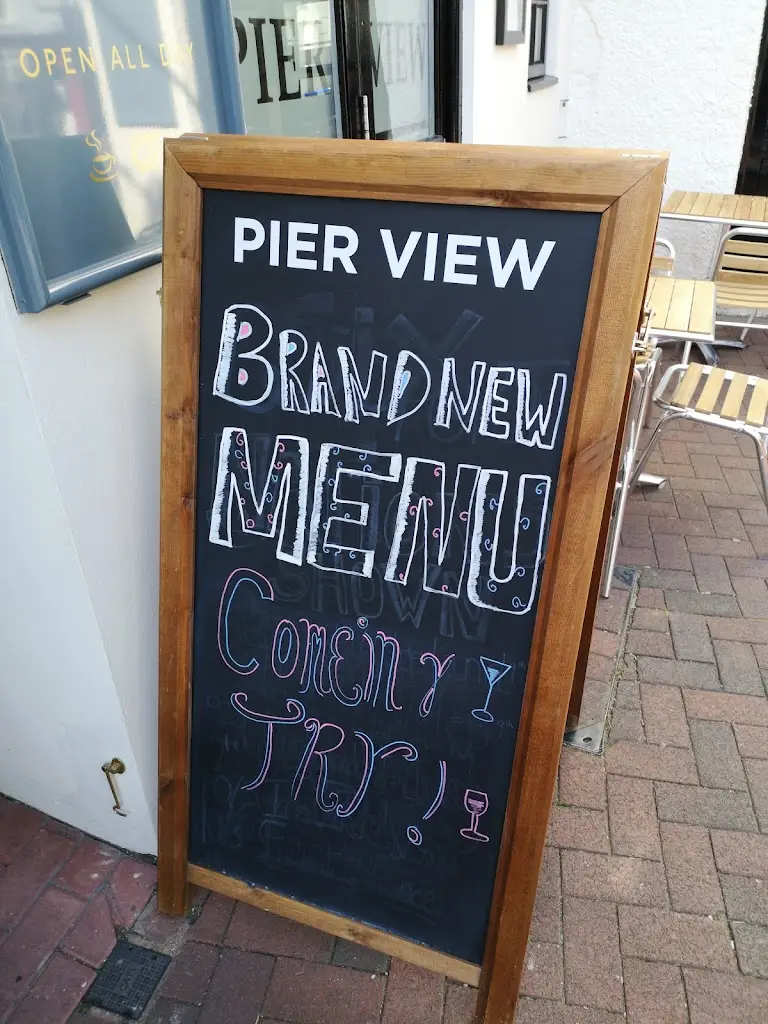 OPEN ALL DAY
PIER VIEW
PIER VIEW
BRAND NEW
MENU
COME in y
TRY!